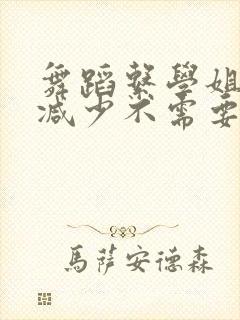 舞蹈繫學姐
減少不需要
馬薩安德森